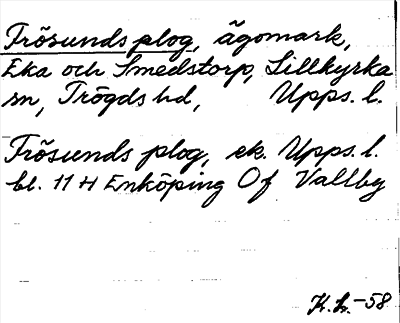 Frösunds plog, ägomark,
Eka och Smedstorp, Lillkyrka
sn, Trögds hd, Upps. l.
Frösunds plog, ek. Upps. l.
bl. 11 H Enköping Of Vallby
K. L. -58